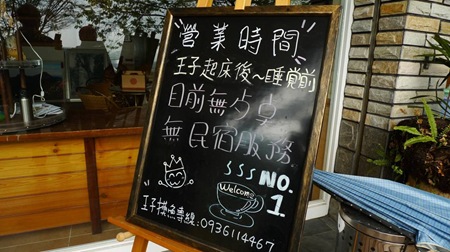 營業時間
王子起床後~睡覺前
目前無占卓
無民宿服務
NO.
1
Welcome
王子摸魚專線:0936114467